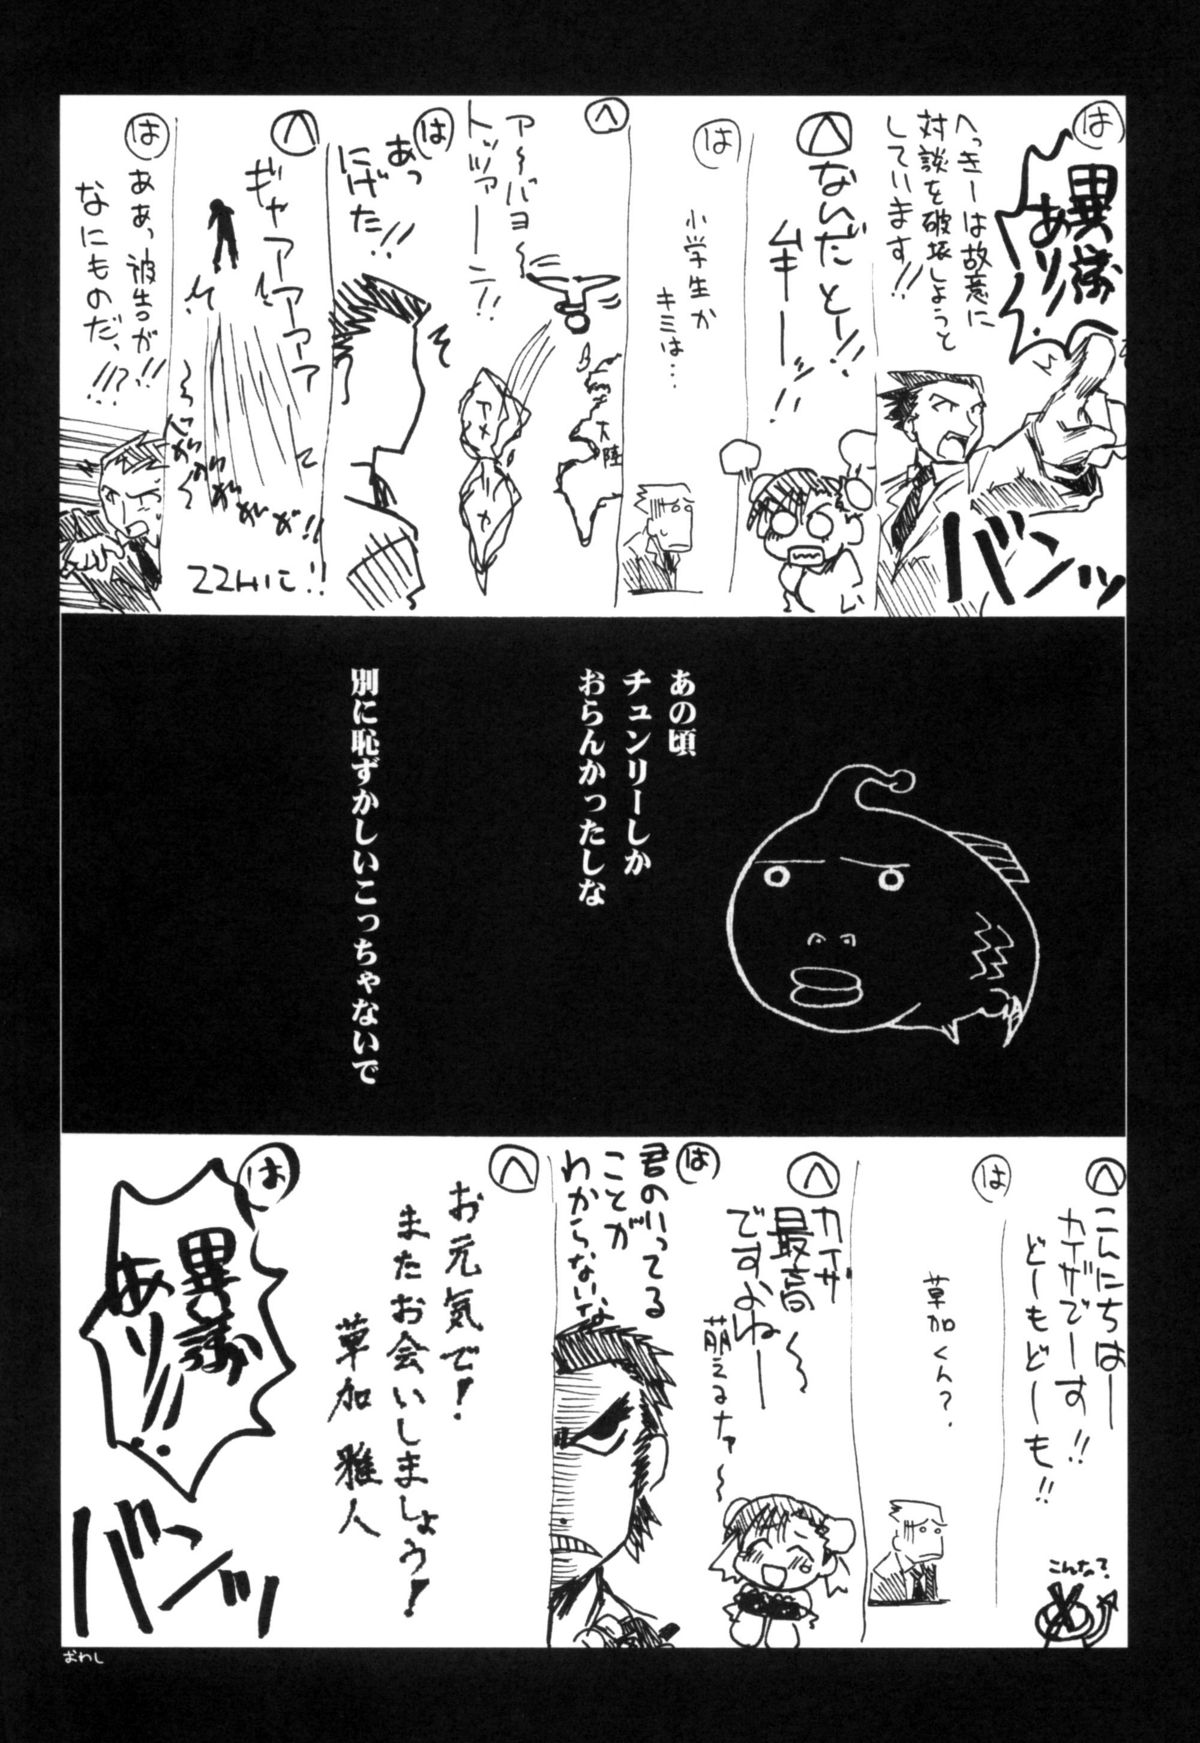 は
異議
あり!!
へっきーは故意に
対談を破壊しようと
しています!!
へ
ないだとー!!
ムキーーー!!
は
小学生か
キミは…
へ
アーバヨ〜
トッツァーーン!!
アメ
リカ
大陸
は
あっ
にげた!!
そ
へ
ギャアアアアア
22Hに!!
は
ああ、被告が!!
なにものだっ!!?
バンッ
あの頃
チュンリーしか
おらんかったしな
別に恥ずかしいこっちゃないで
へ
こんにちはー
カイザでーす!!
どーもどーも!!
こんなの?
は
草加くん?
へ
カイザ
最高〜
ですよねー
萌えるナァ〜
は
君のいってる
ことが
わからないな
へ
お元気で!
またお会いしましょう!
草加 雅人
は
異議
あり!!
バンッ
おわし